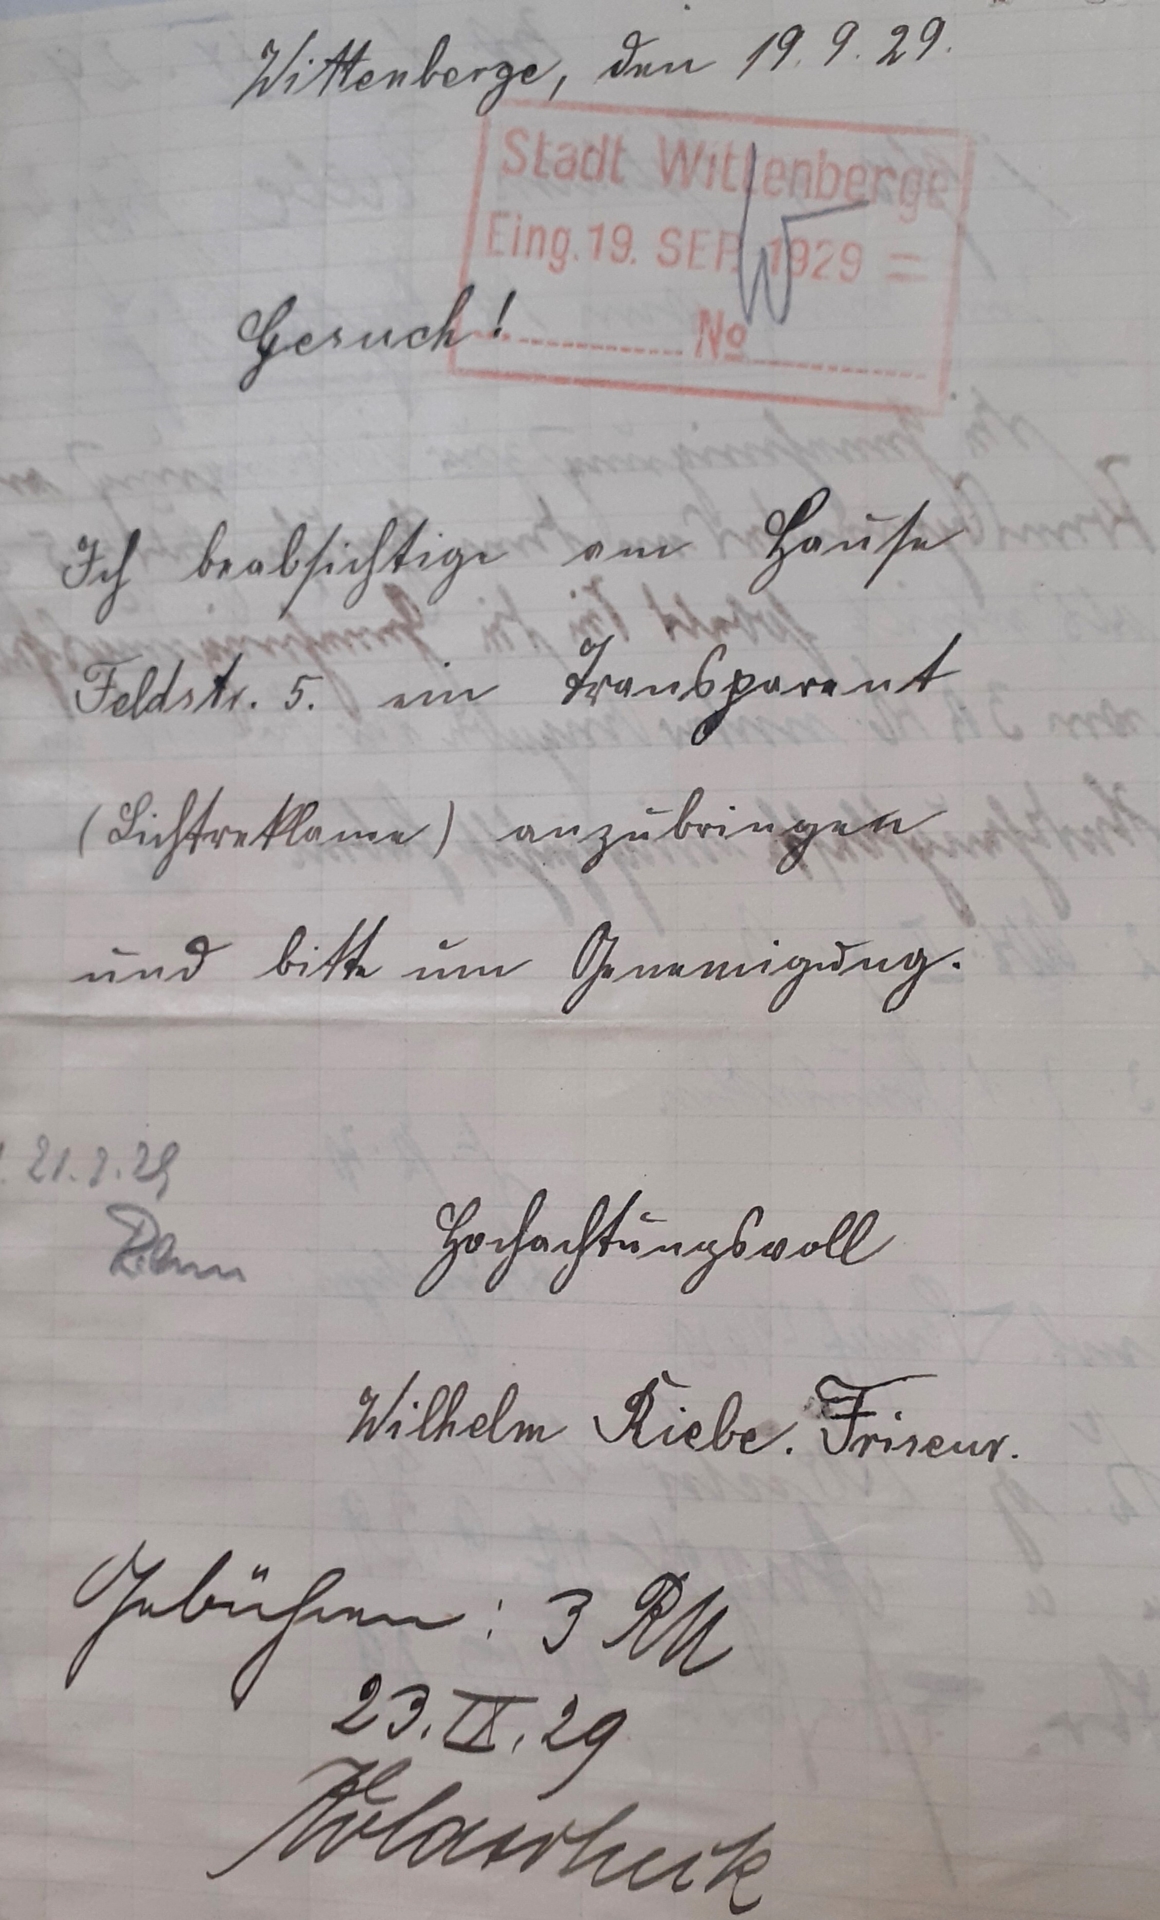 Wittenberge, den 19. 9. 29.
Stadt Wittenberge
Eing. 19. SEP. 1929 =
Gesuch!
No
Ich beabsichtige am Hause
Feldstr. 5. ein Transparent
(Lichtreklame) anzubringen
und bitte um Genemigung.
21.9.29
Hochachtungsvoll
Wilhelm Riebe. Friseur.
Gebühren: 3 RM
23.IX.29